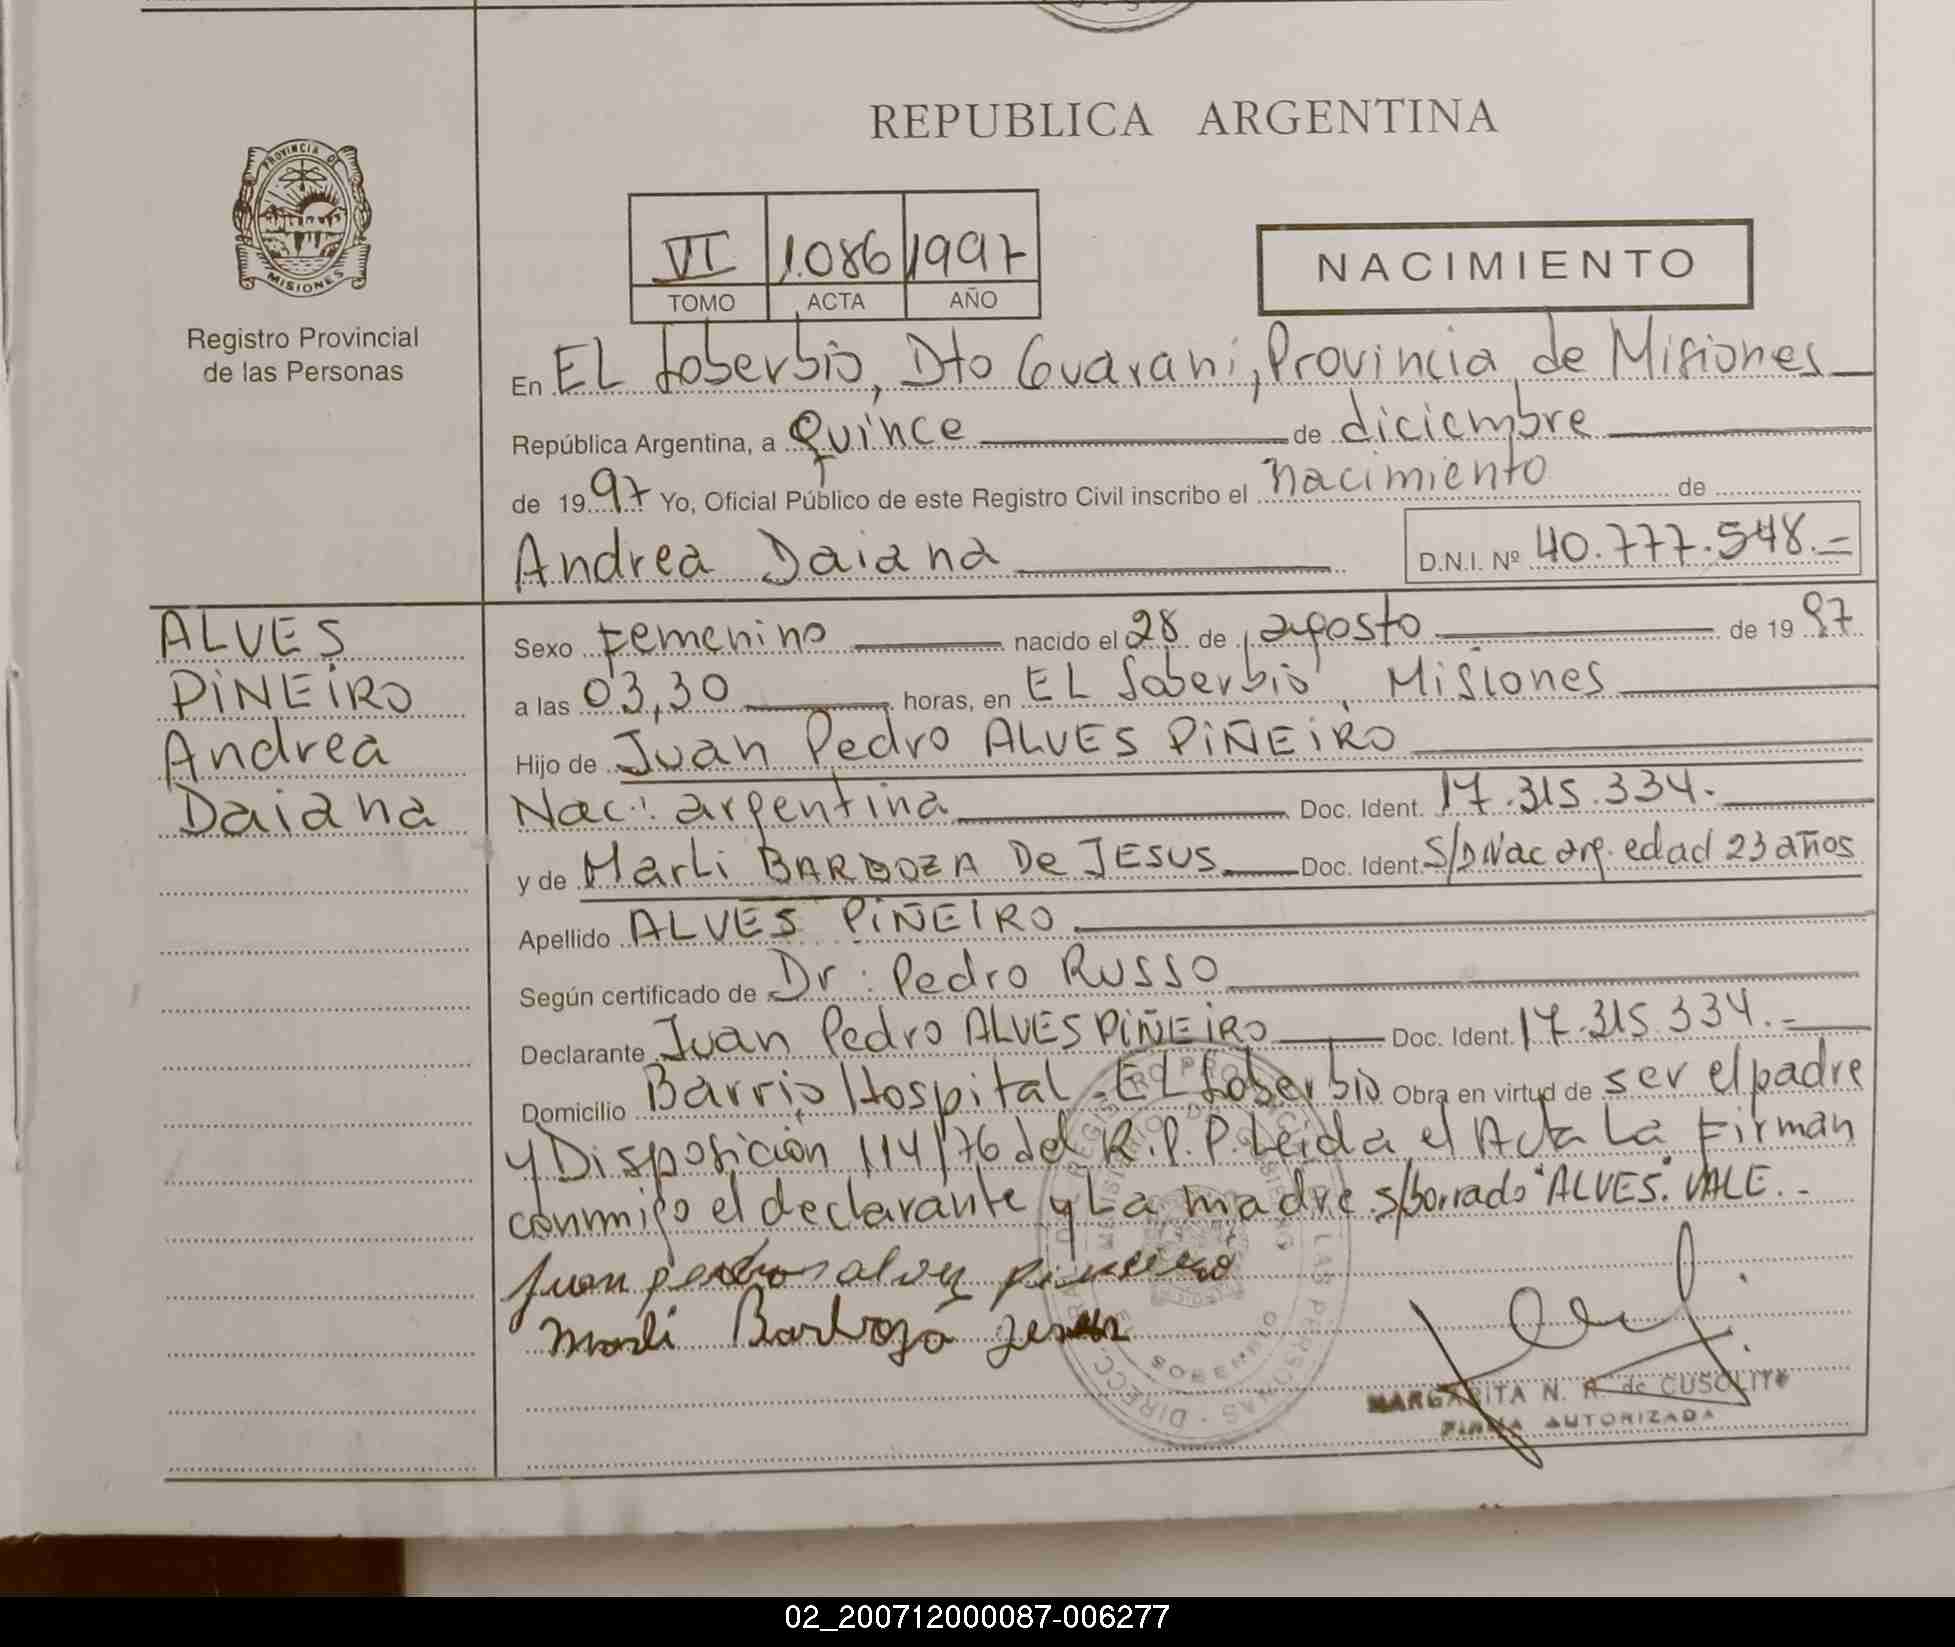 REPUBLICA ARGENTINA
PROVINCIA DE
MISIONES
Registro Provincial
de las Personas
VI 1.086 1997
TOMO ACTA AÑO
NACIMIENTO
En EL Soberbio, Dto Guarani, Provincia de Misiones
República Argentina, a Quince de diciembre
de 1997 Yo, Oficial Público de este Registro Civil inscribo el nacimiento de
Andrea Daiana D.N.I. Nº 40.777.548.=
ALVES
PIÑEIRO
Andrea
Daiana
Sexo Femenino nacido el 28 de agosto de 1997
a las 03,30 horas, en EL Soberbio, Misiones
Hijo de Juan Pedro ALVES PIÑEIRO
Nac: argentina Doc. Ident. 17.315.334.
y de Marli BARBOZA De JESUS Doc. Ident. S/D Nac arg. edad 23 años
Apellido ALVES PIÑEIRO
Según certificado de Dr: Pedro RUSSO
Declarante Juan Pedro ALVES PIÑEIRO Doc. Ident. 17.315.334.-
Domicilio Barrio Hospital - EL Soberbio Obra en virtud de ser el padre
y Disposición 114/76 del R.P.P. Leida el Acta La Firman
conmigo el declarante y La madre s/borrado "ALVES". VALE.-
Juan pedro alvez piñeiro
Marli Barboza Jesus
MARGARITA N. R. de CUSOLITO
FIRMA AUTORIZADA
02_200712000087-006277